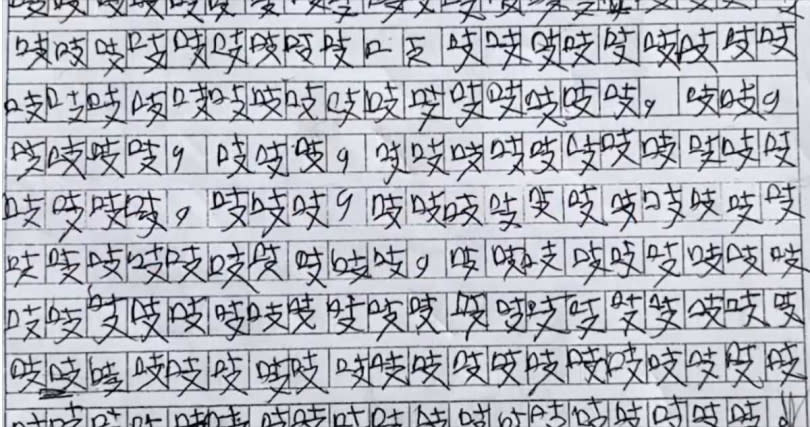 吱吱吱吱吱吱吱吱吱口 吱吱吱吱吱吱吱吱吱
吱吱吱吱吱吱吱吱吱吱吱吱吱吱吱吱，吱吱，
吱吱吱吱，吱吱吱，吱吱吱吱吱吱吱吱吱吱吱
吱吱吱吱，吱吱吱，吱吱吱吱吱吱吱吱吱吱吱
吱吱吱吱吱吱吱吱吱吱，吱吱吱吱吱吱吱吱吱
吱吱吱吱吱吱吱吱吱吱吱吱吱吱吱吱吱吱吱吱
吱吱吱吱吱吱吱吱吱吱吱吱吱吱吱吱吱吱吱吱